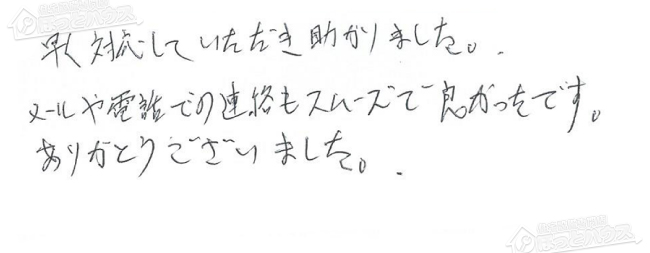 早く対応していただき助かりました。
メールや電話での連絡もスムーズで良かったです。
ありがとうございました。